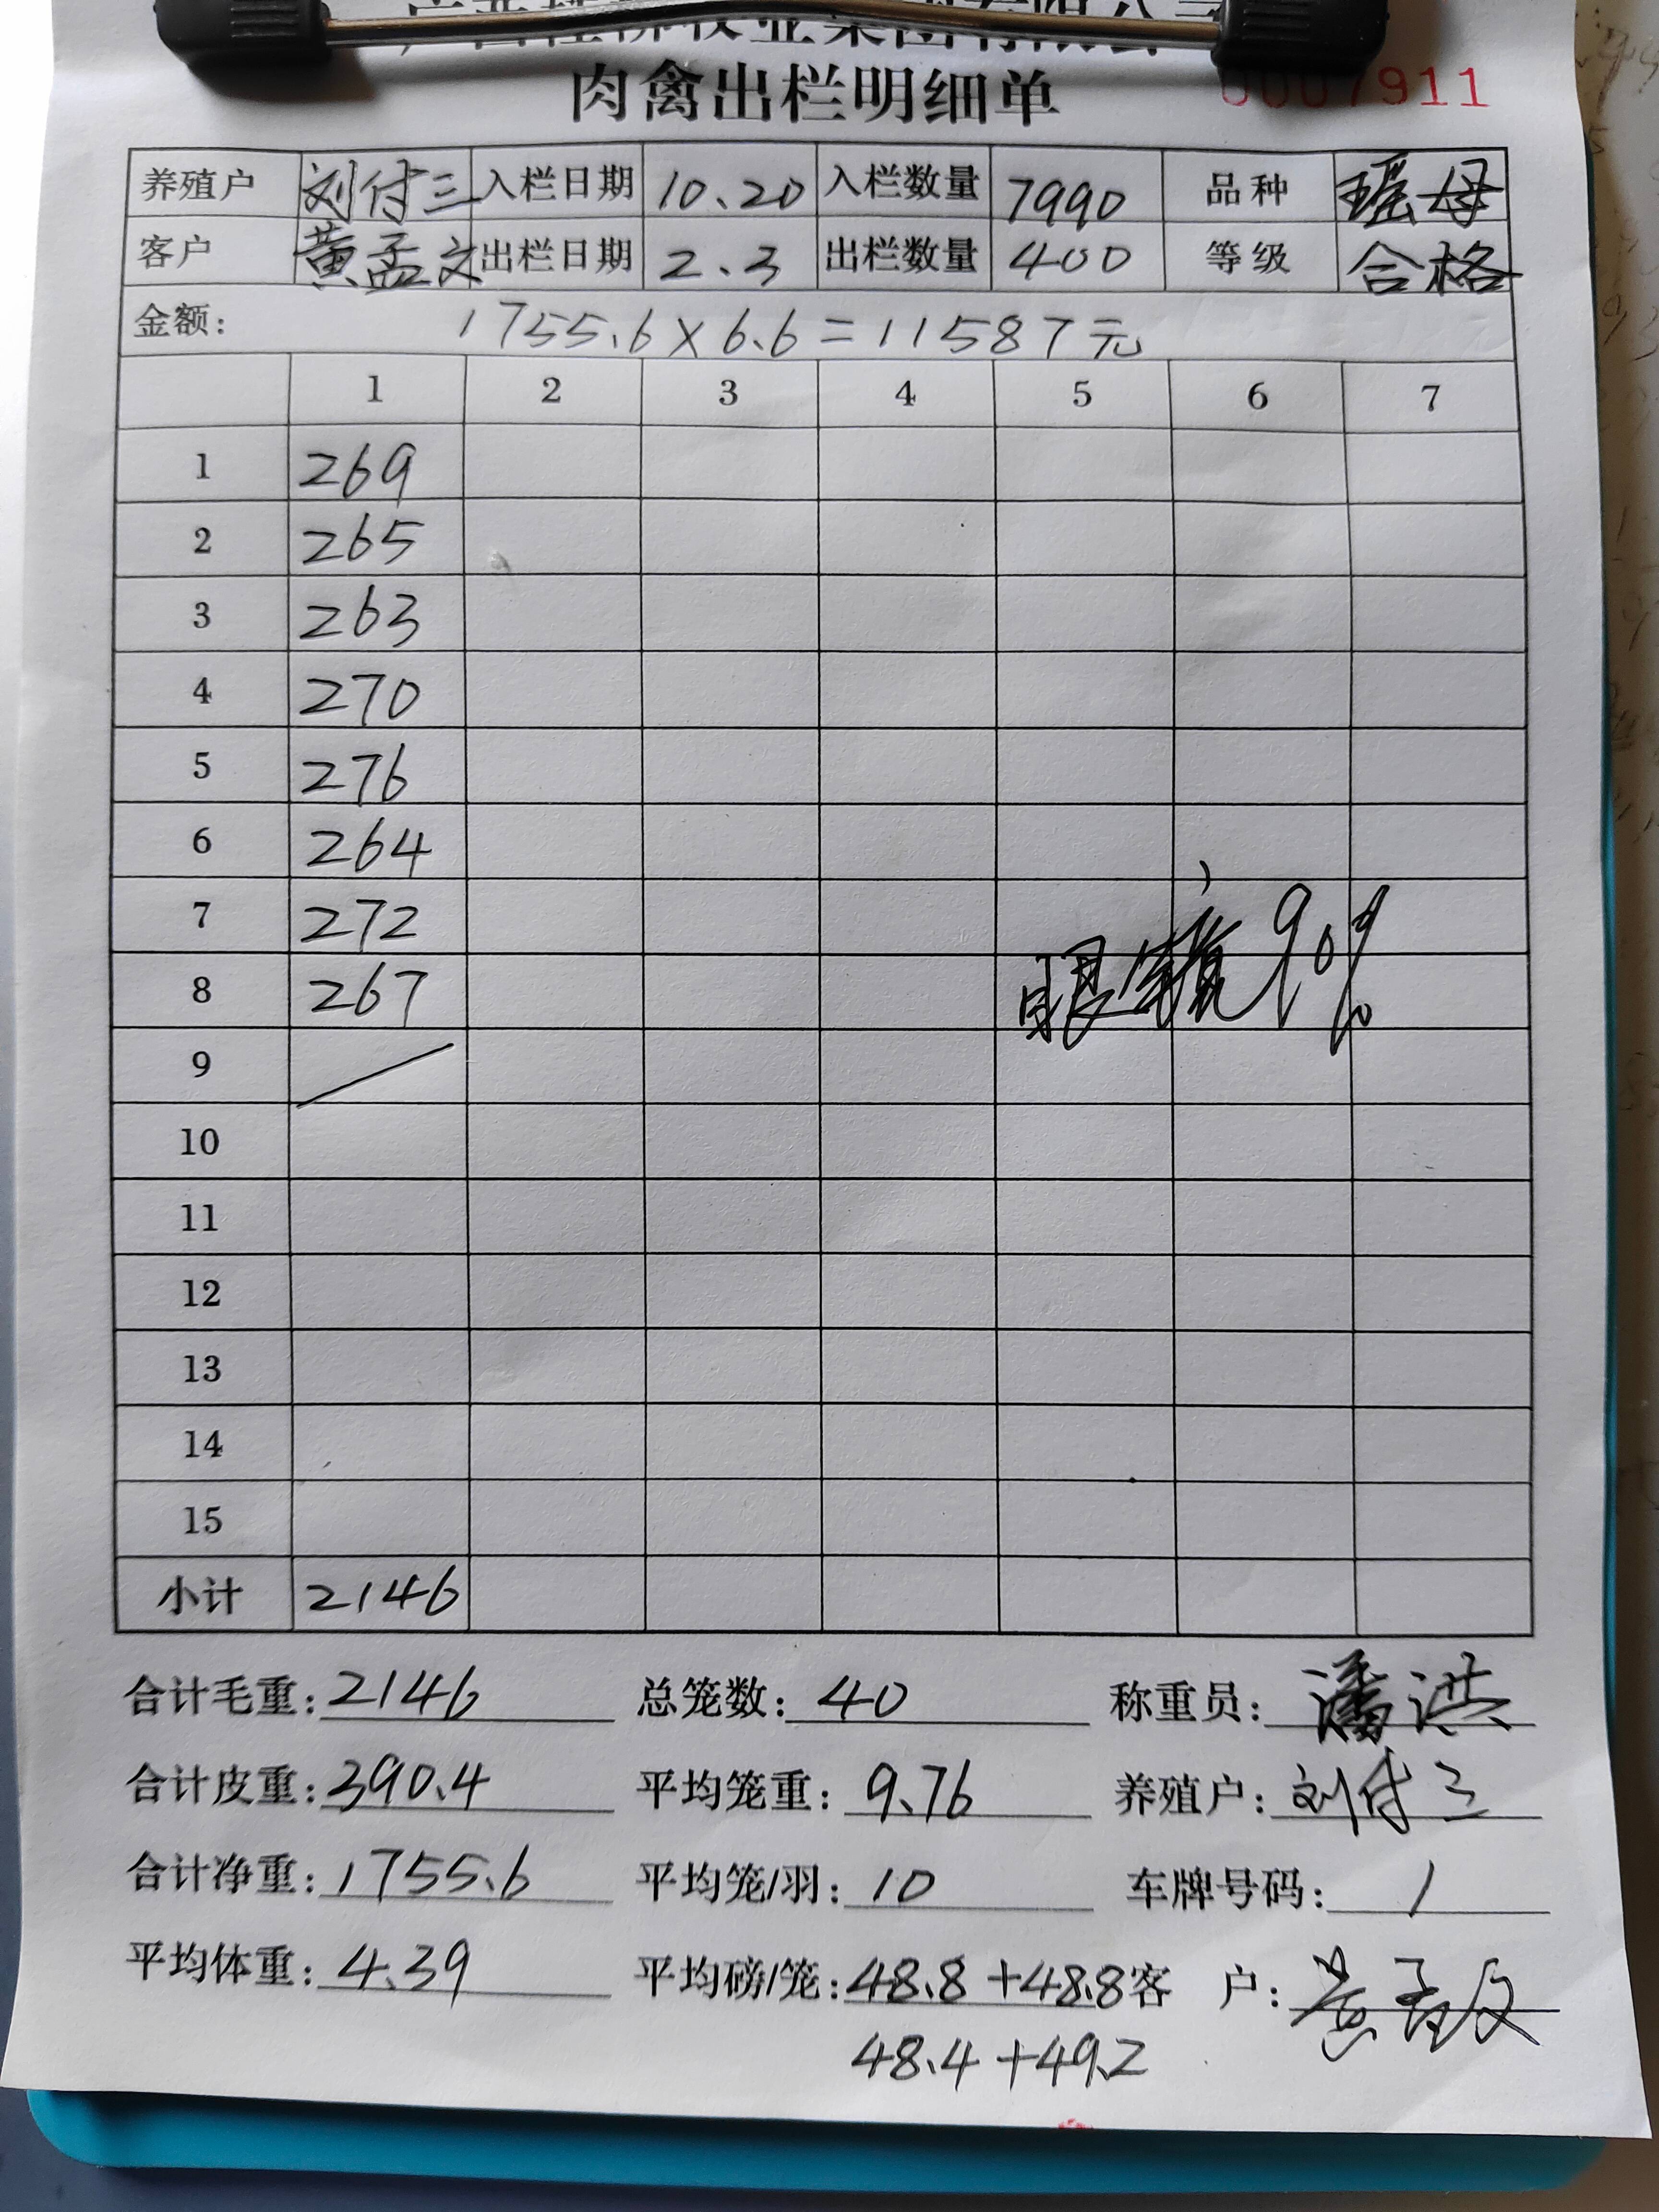 肉禽出栏明细单
0007911
养殖户 刘付三 入栏日期 10.20 入栏数量 7990 品种 瑶母
客户 黄孟文 出栏日期 2.3 出栏数量 400 等级 合格
金额: 1755.6×6.6=11587元
1 2 3 4 5 6 7
1 269
2 265
3 263
4 270
5 276
6 264
7 272
8 267
眼 90%
9
10
11
12
13
14
15
小计 2146
合计毛重: 2146 总笼数: 40 称重员: 潘洪
合计皮重: 390.4 平均笼重: 9.76 养殖户: 刘付三
合计净重: 1755.6 平均笼/羽: 10 车牌号码: /
平均体重: 4.39 平均磅/笼: 48.8+48.8 客户: 黄孟文
48.4+49.2